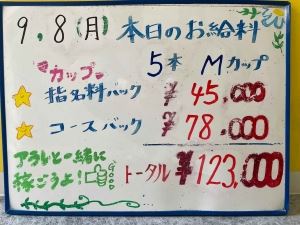 9.8(月) 本日のお給料
カップ 5本 Mカップ
指名料バック ¥45,000
コースバック ¥78,000
アラレと一緒に
稼ごうよ! トータル ¥123,000